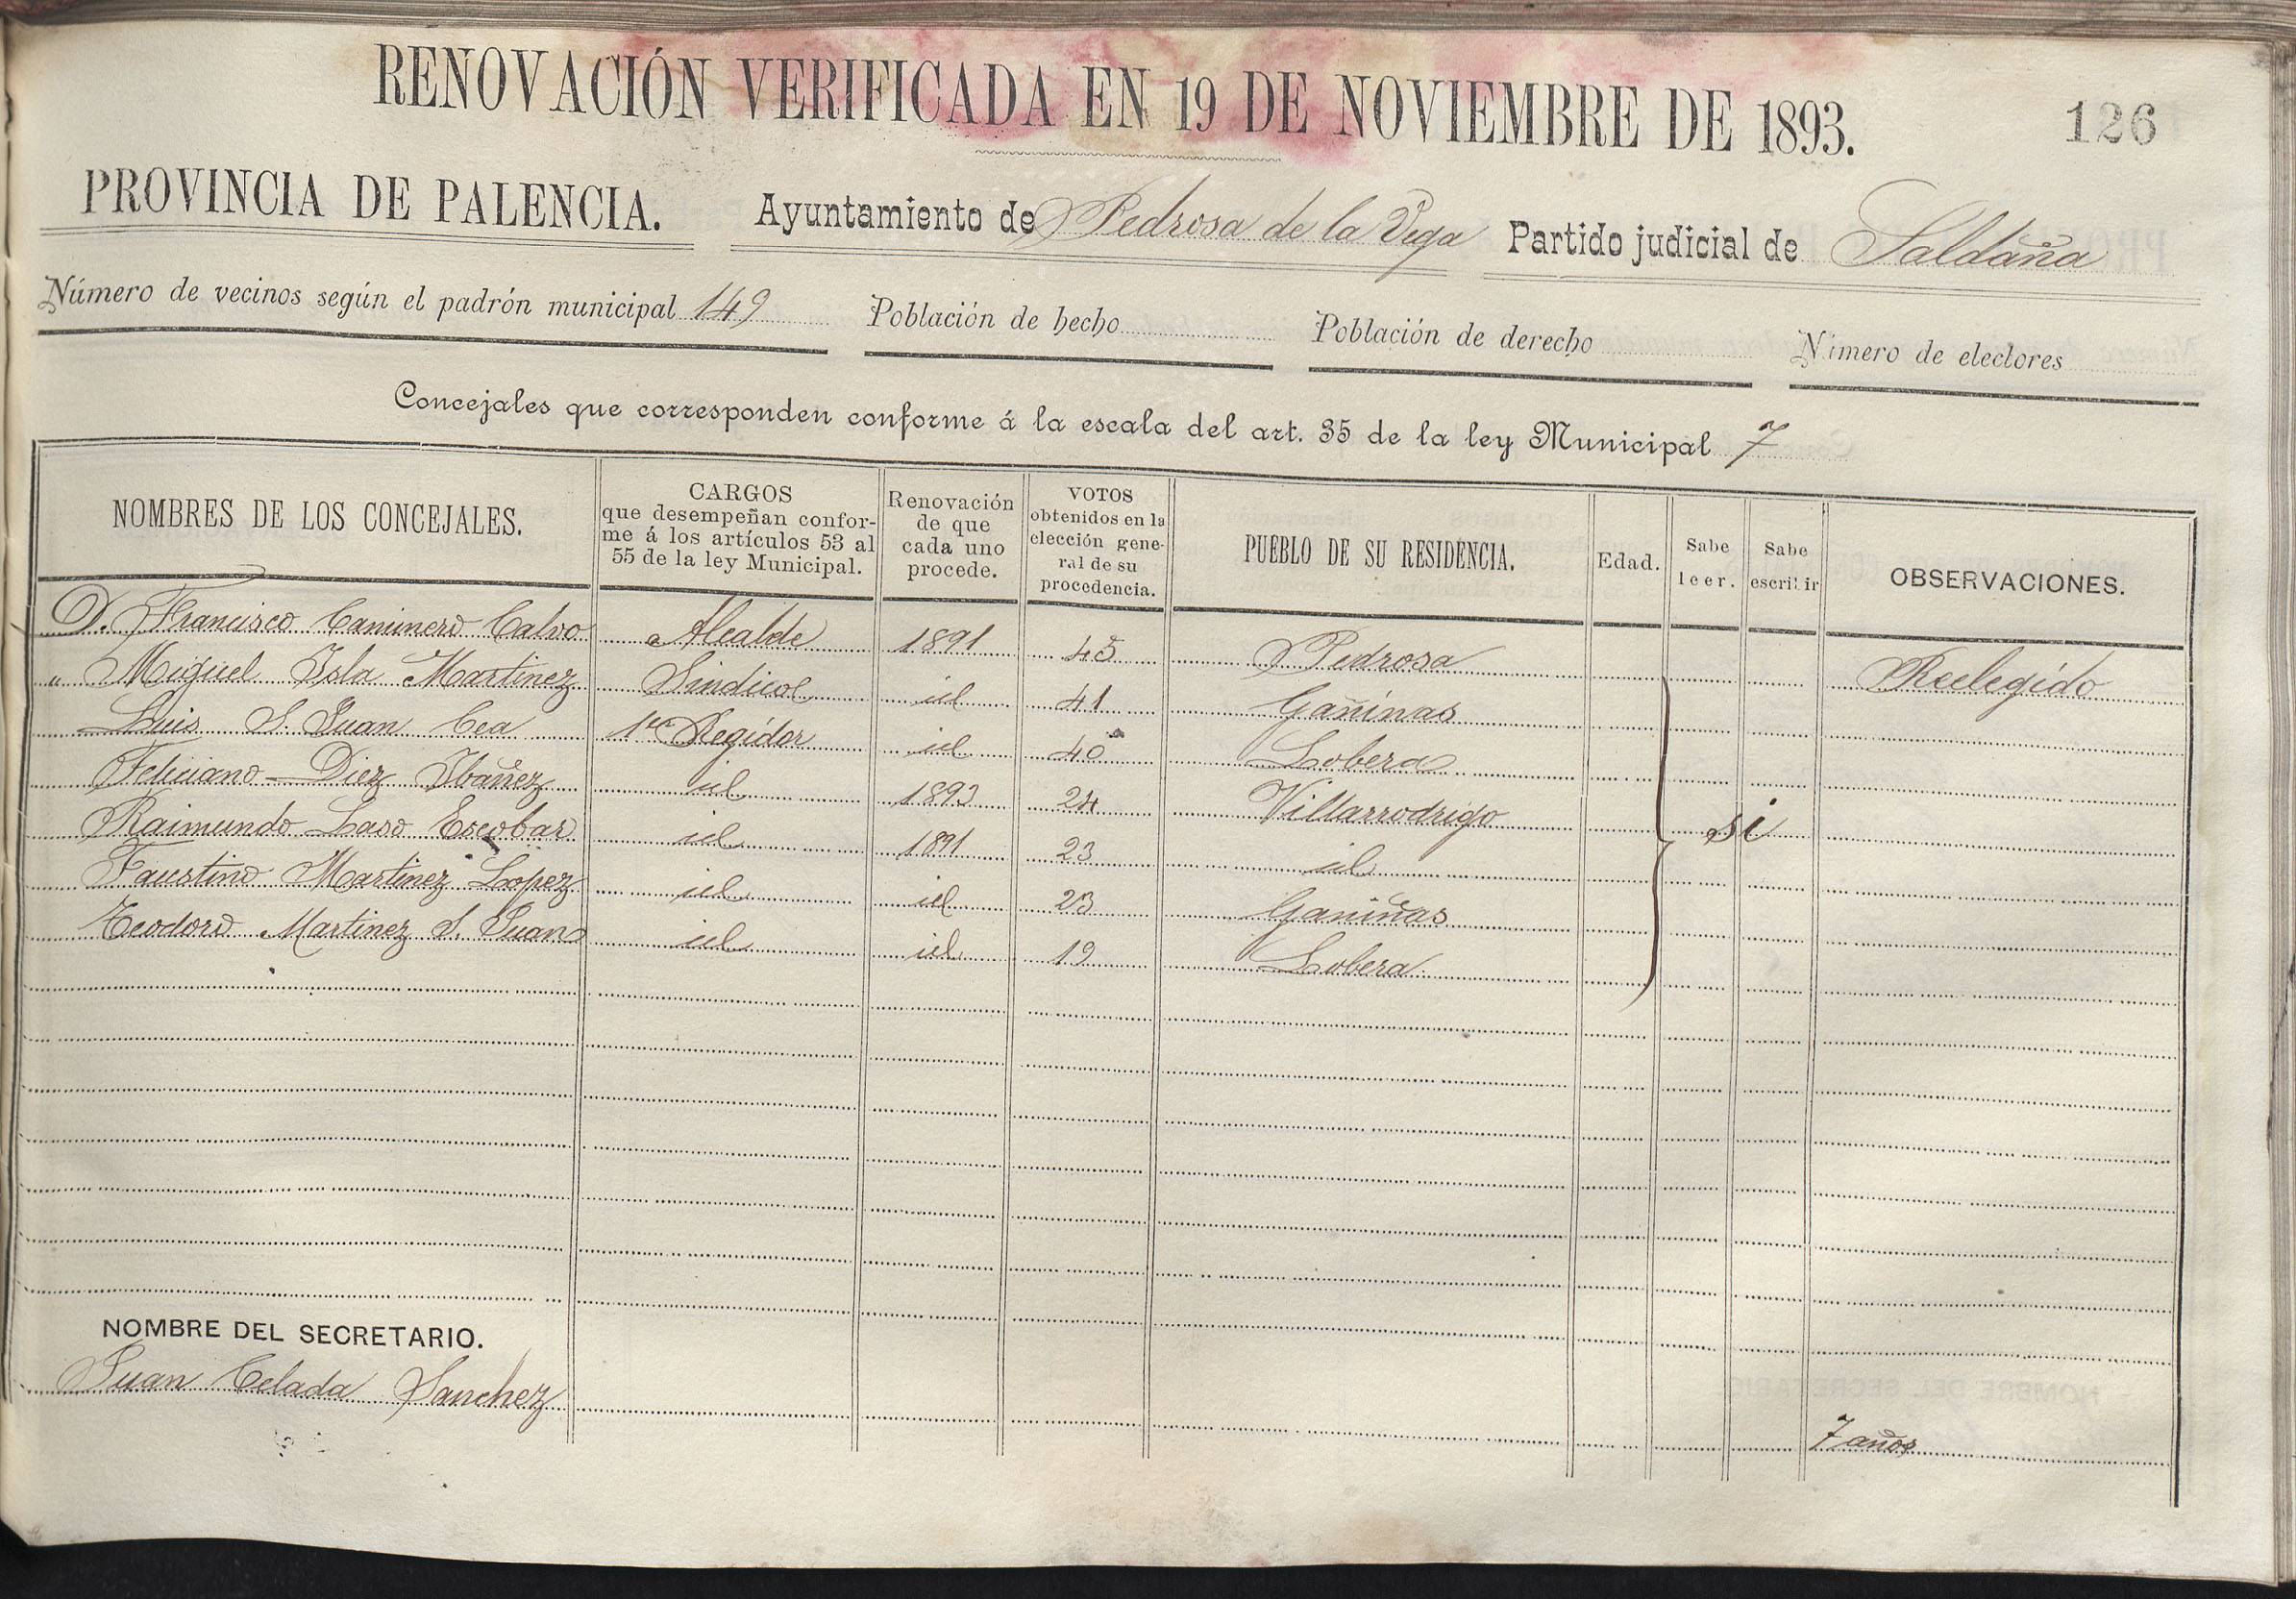 RENOVACIÓN VERIFICADA EN 19 DE NOVIEMBRE DE 1893.
126
PROVINCIA DE PALENCIA. Ayuntamiento de Pedrosa de la Vega Partido judicial de Saldaña
Número de vecinos según el padrón municipal 149 Población de hecho Población de derecho Número de electores
Concejales que corresponden conforme á la escala del art. 35 de la ley Municipal 7
NOMBRES DE LOS CONCEJALES.
CARGOS
que desempeñan confor-
me á los artículos 53 al
55 de la ley Municipal.
Renovación
de que
cada uno
procede.
VOTOS
obtenidos en la
elección gene-
ral de su
procedencia.
PUEBLO DE SU RESIDENCIA.
Edad.
Sabe
leer.
Sabe
escribir
OBSERVACIONES.
D. Francisco Caminero Calvo Alcalde 1891 45 Pedrosa Reelegido
" Miguel Isla Martinez Sindico id 41 Gañinas
Luis S. Juan Cea 1er Regidor id 40 Lobera
Feliciano Diez Ibañez id 1893 24 Villarrodrigo si
Raimundo Laso Escobar id 1891 23 id
Faustino Martinez Lopez id id 23 Gañiñas
Teodoro Martinez S. Juan id id 19 Lobera
NOMBRE DEL SECRETARIO.
Juan Celada Sanchez 7 años